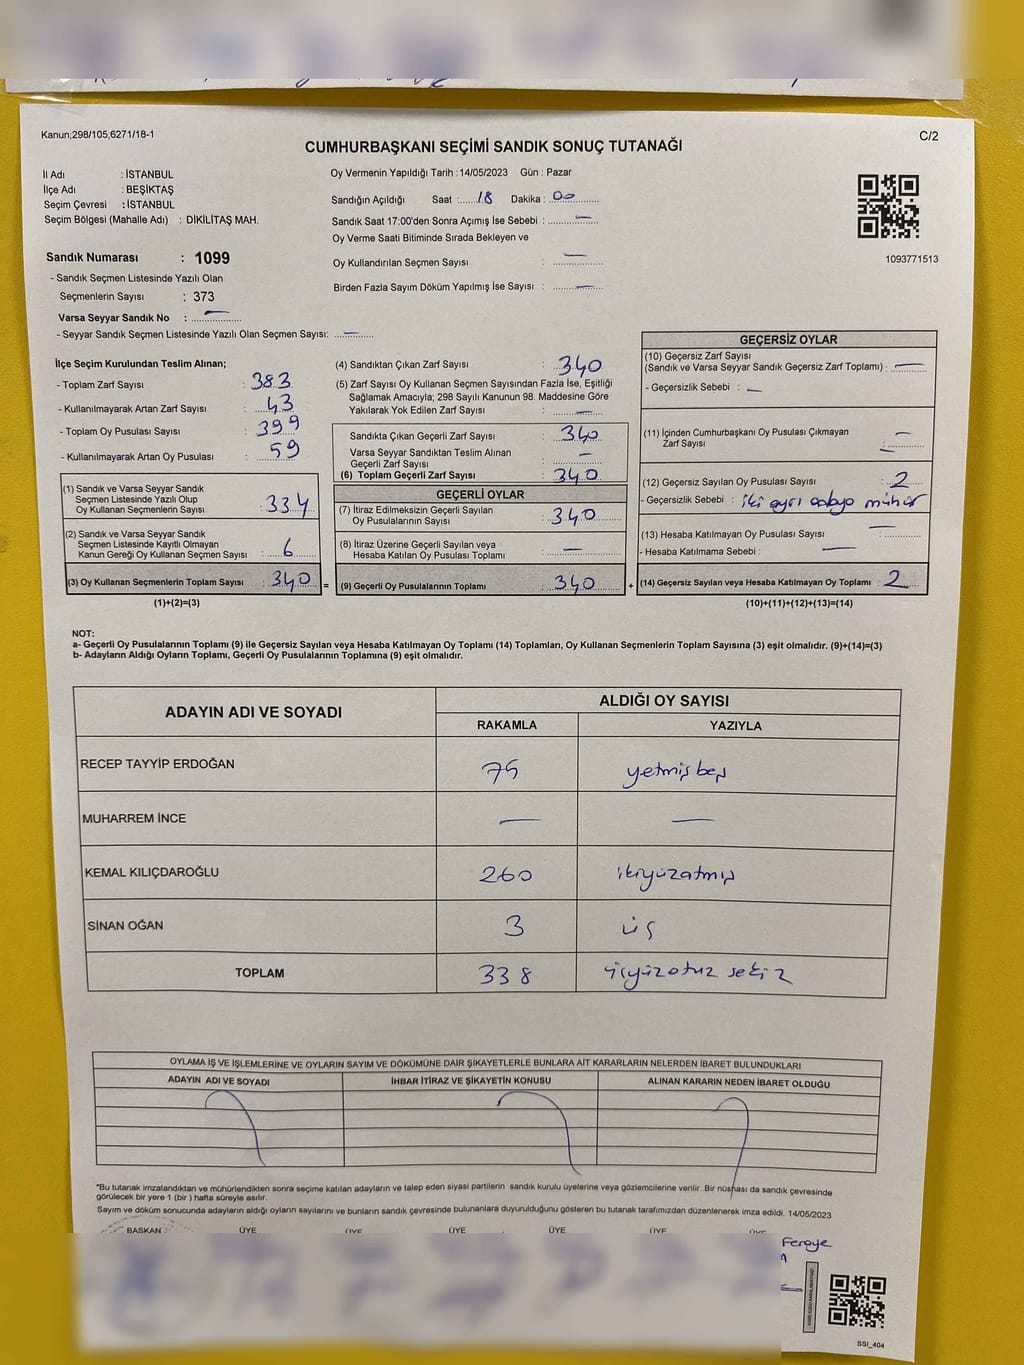 Kanun;298/105;6271/18-1
C/2
CUMHURBAŞKANI SEÇİMİ SANDIK SONUÇ TUTANAĞI
İl Adı : İSTANBUL
İlçe Adı : BEŞİKTAŞ
Seçim Çevresi : İSTANBUL
Seçim Bölgesi (Mahalle Adı) : DİKİLİTAŞ MAH.
Oy Vermenin Yapıldığı Tarih : 14/05/2023 Gün : Pazar
Sandığın Açıldığı Saat : 18 Dakika : 00
Sandık Saat 17:00'den Sonra Açımış İse Sebebi : —
Oy Verme Saati Bitiminde Sırada Bekleyen ve
Oy Kullandırılan Seçmen Sayısı : —
Birden Fazla Sayım Döküm Yapılmış İse Sayısı : —
1093771513
Sandık Numarası : 1099
- Sandık Seçmen Listesinde Yazılı Olan
Seçmenlerin Sayısı : 373
Varsa Seyyar Sandık No : —
- Seyyar Sandık Seçmen Listesinde Yazılı Olan Seçmen Sayısı: —
İlçe Seçim Kurulundan Teslim Alınan;
- Toplam Zarf Sayısı : 383
- Kullanılmayarak Artan Zarf Sayısı : 43
- Toplam Oy Pusulası Sayısı : 399
- Kullanılmayarak Artan Oy Pusulası : 59
(1) Sandık ve Varsa Seyyar Sandık
Seçmen Listesinde Yazılı Olup
Oy Kullanan Seçmenlerin Sayısı : 334
(2) Sandık ve Varsa Seyyar Sandık
Seçmen Listesinde Kayıtlı Olmayan
Kanun Gereği Oy Kullanan Seçmen Sayısı : 6
(3) Oy Kullanan Seçmenlerin Toplam Sayısı : 340
(1)+(2)=(3)
(4) Sandıktan Çıkan Zarf Sayısı : 340
(5) Zarf Sayısı Oy Kullanan Seçmen Sayısından Fazla İse, Eşitliği
Sağlamak Amacıyla; 298 Sayılı Kanunun 98. Maddesine Göre
Yakılarak Yok Edilen Zarf Sayısı : —
Sandıkta Çıkan Geçerli Zarf Sayısı : 340
Varsa Seyyar Sandıktan Teslim Alınan
Geçerli Zarf Sayısı : —
(6) Toplam Geçerli Zarf Sayısı : 340
GEÇERLİ OYLAR
(7) İtiraz Edilmeksizin Geçerli Sayılan
Oy Pusulalarının Sayısı : 340
(8) İtiraz Üzerine Geçerli Sayılan veya
Hesaba Katılan Oy Pusulası Toplamı : —
= (9) Geçerli Oy Pusulalarının Toplamı : 340 +
GEÇERSİZ OYLAR
(10) Geçersiz Zarf Sayısı
(Sandık ve Varsa Seyyar Sandık Geçersiz Zarf Toplamı) : —
- Geçersizlik Sebebi : —
(11) İçinden Cumhurbaşkanı Oy Pusulası Çıkmayan
Zarf Sayısı : —
(12) Geçersiz Sayılan Oy Pusulası Sayısı : 2
- Geçersizlik Sebebi : iki ayrı adaya mühür
(13) Hesaba Katılmayan Oy Pusulası Sayısı : —
- Hesaba Katılmama Sebebi : —
(14) Geçersiz Sayılan veya Hesaba Katılmayan Oy Toplamı : 2
(10)+(11)+(12)+(13)=(14)
NOT:
a- Geçerli Oy Pusulalarının Toplamı (9) ile Geçersiz Sayılan veya Hesaba Katılmayan Oy Toplamı (14) Toplamları, Oy Kullanan Seçmenlerin Toplam Sayısına (3) eşit olmalıdır. (9)+(14)=(3)
b- Adayların Aldığı Oyların Toplamı, Geçerli Oy Pusulalarının Toplamına (9) eşit olmalıdır.
ADAYIN ADI VE SOYADI ALDIĞI OY SAYISI
RAKAMLA YAZIYLA
RECEP TAYYİP ERDOĞAN 75 yetmişbeş
MUHARREM İNCE — —
KEMAL KILIÇDAROĞLU 260 ikiyüzatmış
SİNAN OĞAN 3 üç
TOPLAM 338 üçyüzotuz sekiz
OYLAMA İŞ VE İŞLEMLERİNE VE OYLARIN SAYIM VE DÖKÜMÜNE DAİR ŞİKAYETLERLE BUNLARA AİT KARARLARIN NELERDEN İBARET BULUNDUKLARI
ADAYIN ADI VE SOYADI İHBAR İTİRAZ VE ŞİKAYETİN KONUSU ALINAN KARARIN NEDEN İBARET OLDUĞU
*Bu tutanak imzalandıktan ve mühürlendikten sonra seçime katılan adayların ve talep eden siyasi partilerin sandık kurulu üyelerine veya gözlemcilerine verilir. Bir nüshası da sandık çevresinde
görülecek bir yere 1 (bir ) hafta süreyle asılır.
Sayım ve döküm sonucunda adayların aldığı oyların sayılarını ve bunların sandık çevresinde bulunanlara duyurulduğunu gösteren bu tutanak tarafımızdan düzenlenerek imza edildi. 14/05/2023
BAŞKAN ÜYE ÜYE ÜYE ÜYE ÜYE ÜYE
Feraye
SSI_404